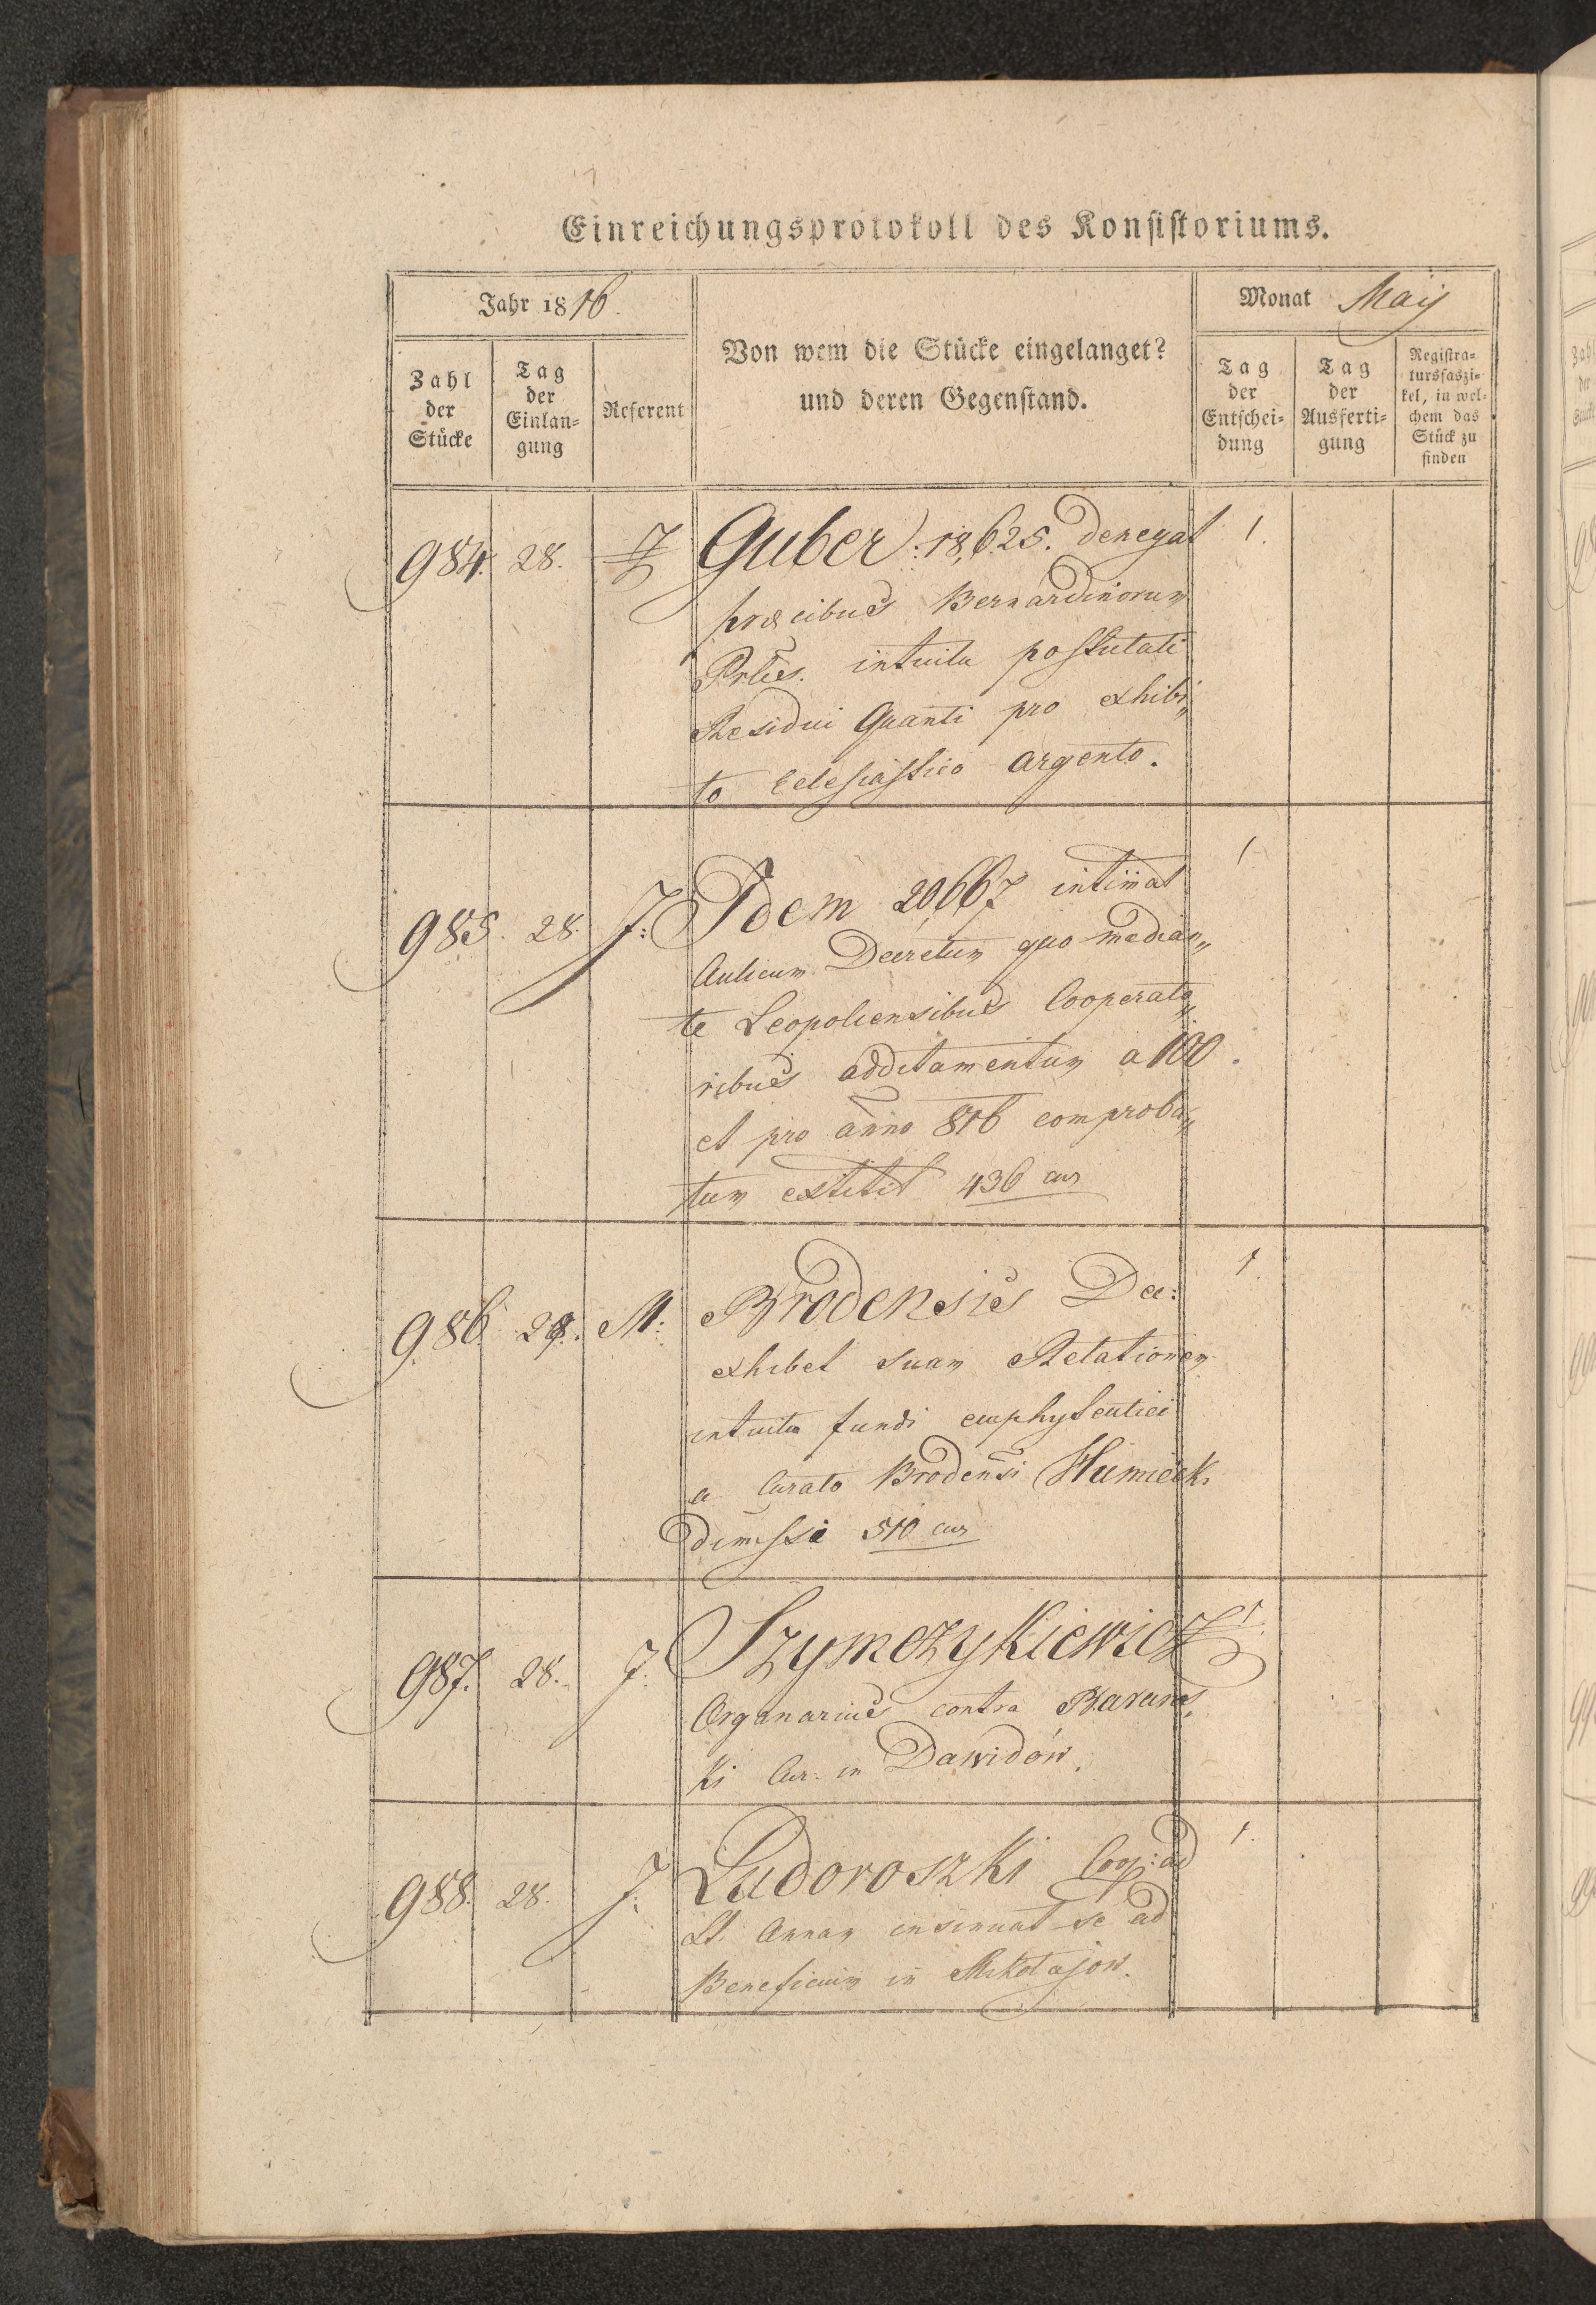 Einreichungsprotokoll des Konsistoriums.
Jahr 1816.
Monat Maij
Zahl der Stücke
Tag der Einlan-gung
Referent
Von wem die Stücke eingelanget?
und deren Gegenstand.
Tag der Entschei-dung
Tag der Ausferti-gung
Registra-tursfaszi-kel, in wel-chem das Stück zu finden
984. 28. Guber: 18,625. denegat 1.
præcibus Bernardinorum
intuitu postulati
Residui Quanti pro exhibi„
to Eclesiastico argento.
985. 28. J: Idem 20,667 intimat 1
Aulicum Decretum quo median„
te Leopoliensibus Cooperato„
ribus additamentum a 100.
et pro anno 816 comproba„
tum extitit 436 cur
986. 28. M: Brodensis Dec: 1.
exhibet suam Relationem
intuitu fundi emphyteutici
a Curato Brodensi
dimissi 510 cur
987. 28. J. Szymczykiewicz 1.
Organarius contra Barans,
ki Cur. in Dawidów.
988. 28. J: Ludoroszki Coop: ad 1.
St. Annam insinuat se ad
Beneficium in Mikołajow.